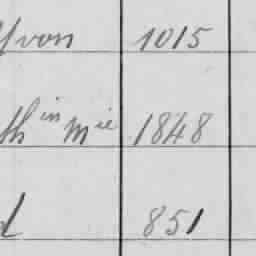 Yvon 1015
th in Mie 1848
d 851